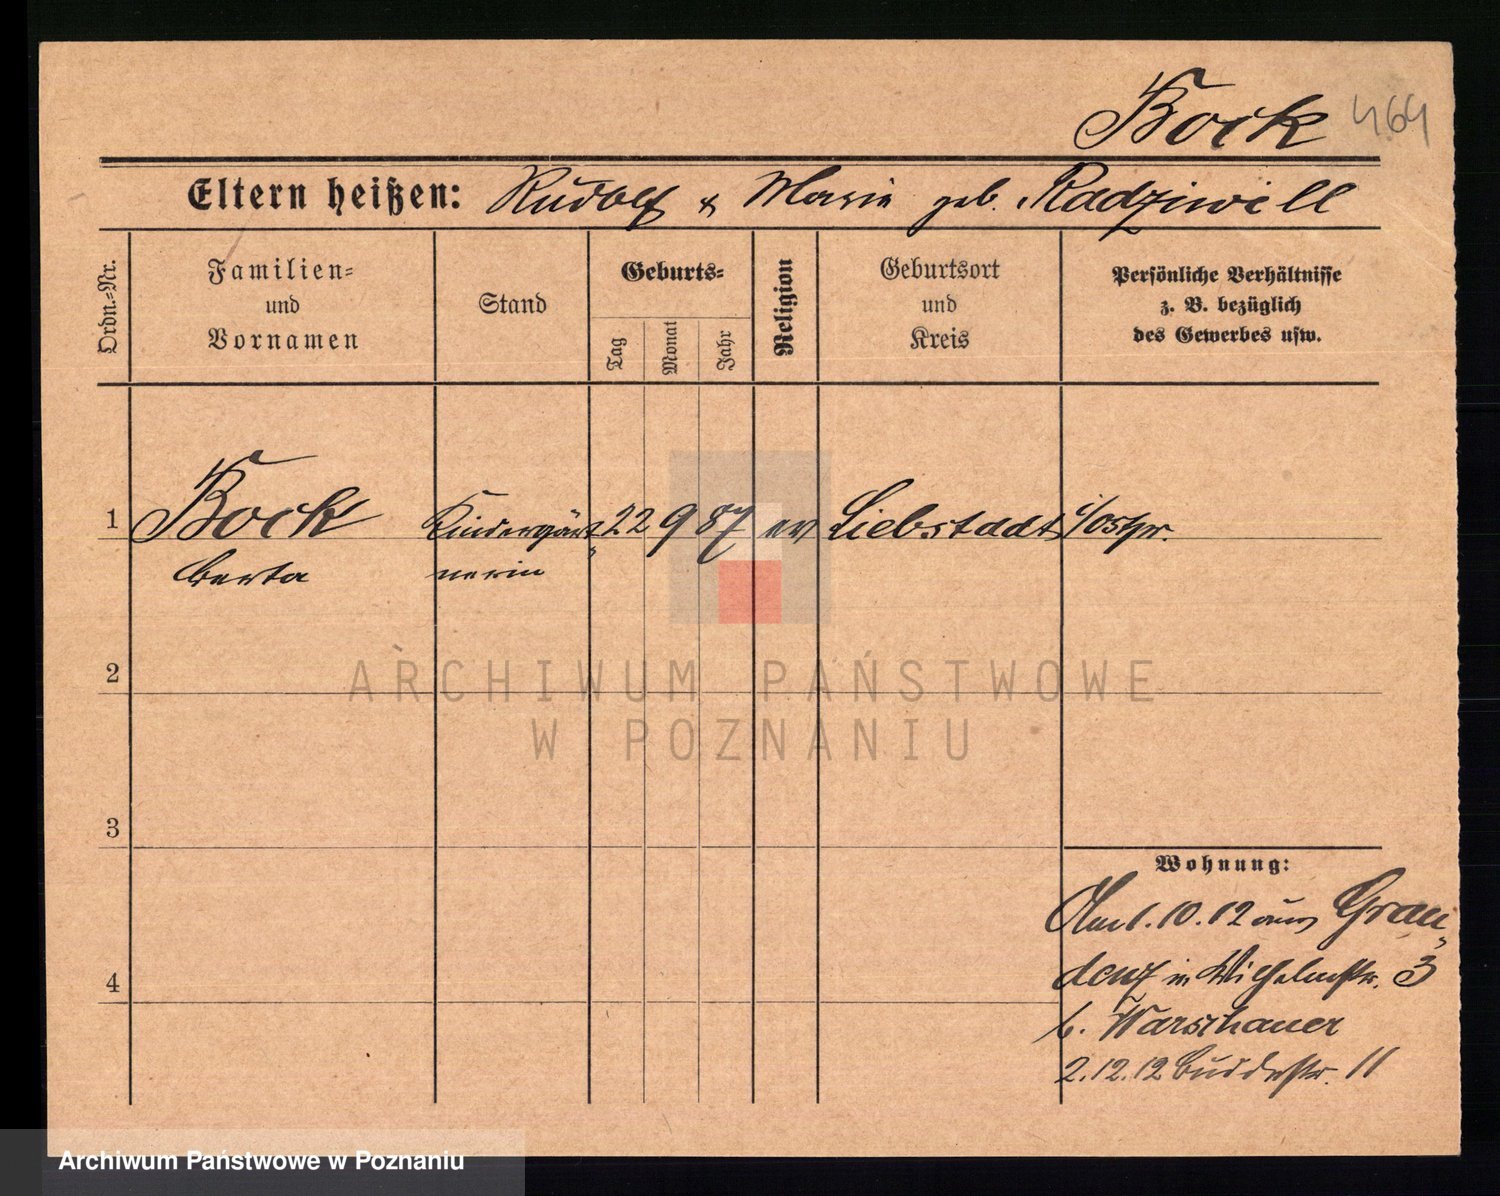 Bock 464
Eltern heißen: Rudolf & Marie geb. Radziwill
Ordn.=Nr.
Familien=
und
Vornamen
Stand
Geburts=
Tag
Monat
Jahr
Religion
Geburtsort
und
Kreis
Persönliche Verhältnisse
z. B. bezüglich
des Gewerbes usw.
1 Bock Kindergärt= 22 9 87 ev Liebstadt i/Ostpr.
Berta nerin
2
ARCHIWUM PAŃSTWOWE
W POZNANIU
3
Wohnung:
Am 1.10.12 aus Grau=
denz in Wilhelmstr. 3
b. Warschauer
4
2.12.12 Buddestr. 11
Archiwum Państwowe w Poznaniu